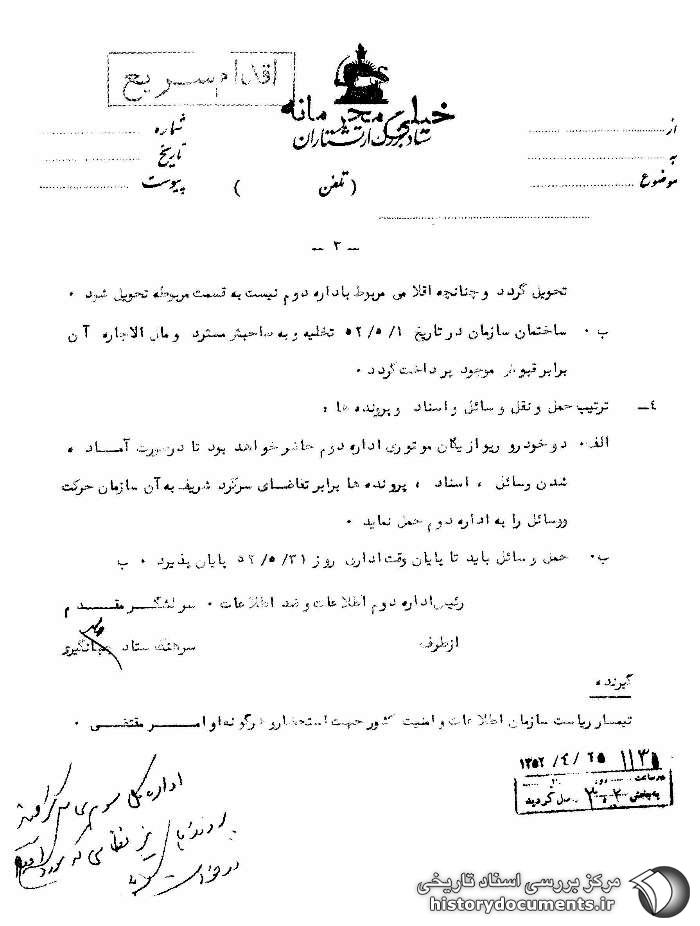 اقدام سریع
خیلی محرمانه
ستاد بزرگ ارتشتاران
از
به
موضوع
شماره
تاریخ
پیوست
( تلفن )
-- ۳ --
تحویل گردد و چنانچه اقلامی مربوط باداره دوم نیست به قسمت مربوطه تحویل شود ٠
ب ٠ ساختمان سازمان در تاریخ ۵۲/۵/۱ تخلیه و به صاحبش مسترد و مال الاجاره آن
برابر قبوض موجود پرداخت گردد ٠
٤- ترتیب حمل و نقل وسائل و اسناد و پرونده ها ،
الف٠ دو خودرو ریو از یگان موتوری اداره دوم حاضر خواهد بود تا در صورت آماده
شدن وسائل ، اسناد ، پرونده ها برابر تقاضای سرگرد شریف به آن سازمان حرکت
و وسائل را به اداره دوم حمل نماید ٠
ب٠ حمل وسائل باید تا پایان وقت اداری روز ۵۲/۵/۳۱ پایان پذیرد ٠ ب
رئیس اداره دوم اطلاعات و ضد اطلاعات ٠ سرلشگر مقدم
از طرف سرهنگ ستاد جهانگیری
گیرنده
تیمسار ریاست سازمان اطلاعات و امنیت کشور جهت استحضار و هرگونه اوامر مقتضی ٠
۱۳۵۲/٤/۲۵
در ساعت روز
به بخش ۳۰۲ واصل گردید
اداره کل سوم
مرکز بررسی اسناد تاریخی
historydocuments.ir